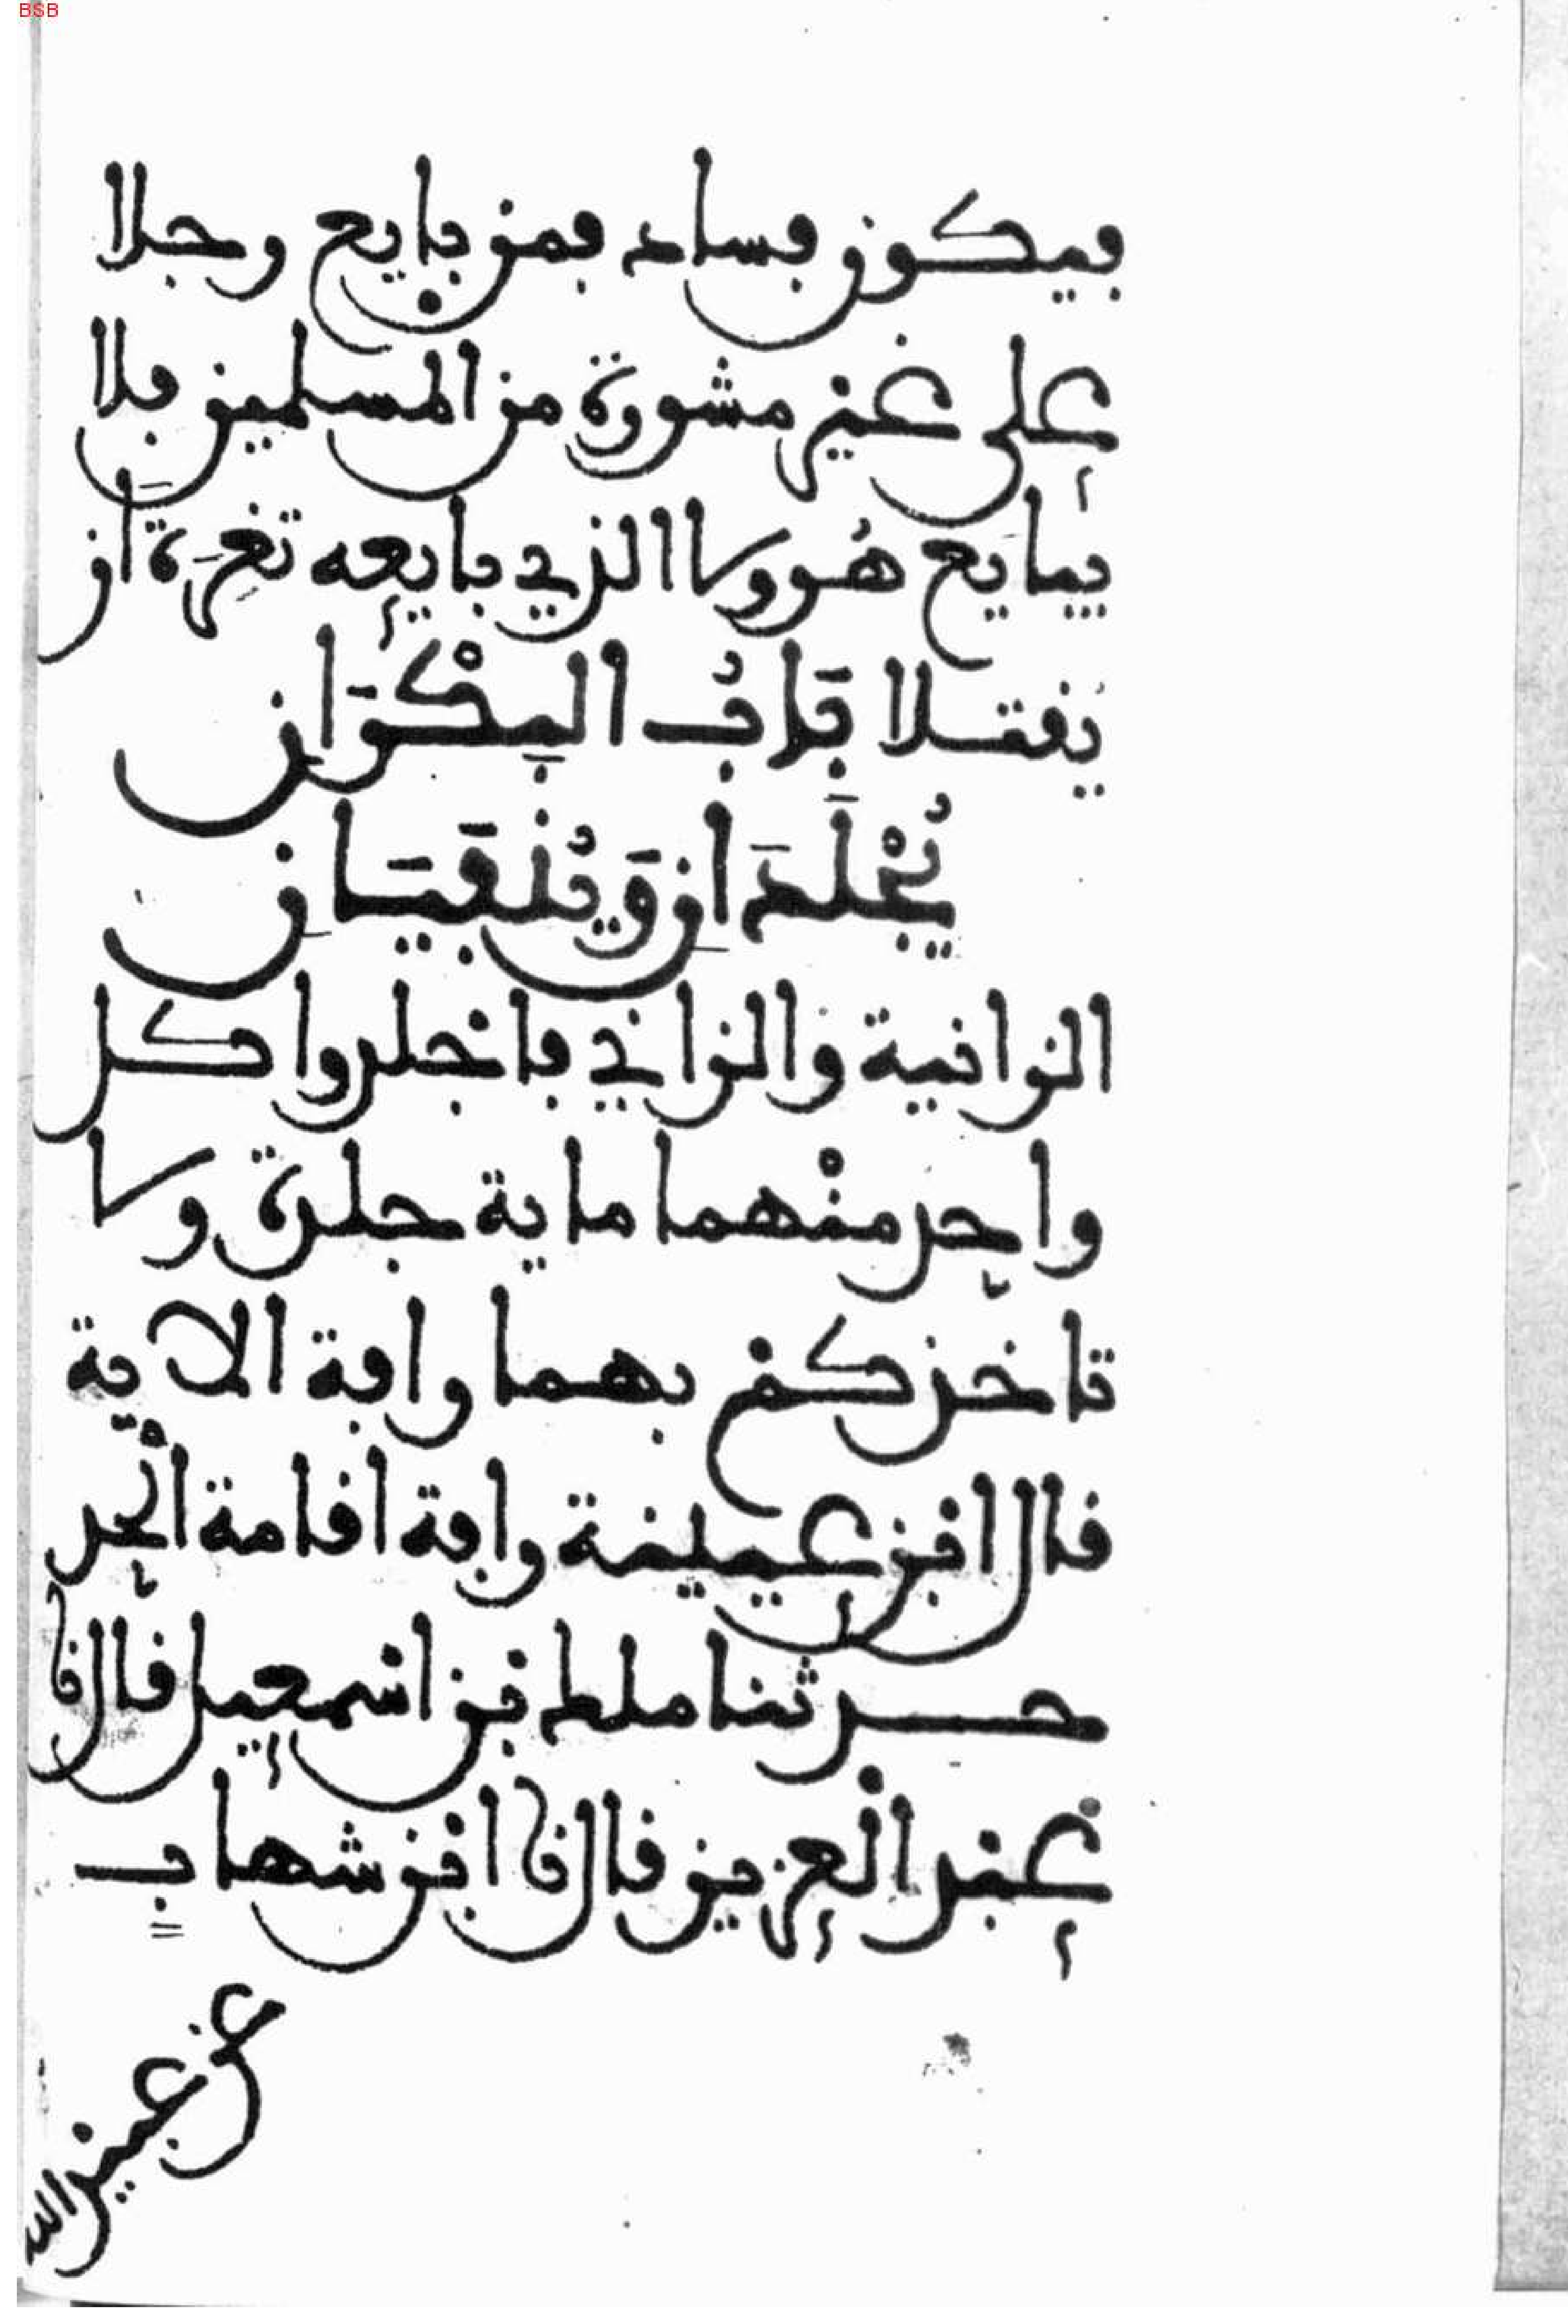 BSB
فيكون فساد فمن بايع رجلا
على غير مشورة من المسلمين فلا
يبايع هو ولا الذي بايعه تغرة ان
يقتلا بَابُ البِكْرَانِ
يُجْلَدَانِ وَيُنْفَيَانِ
الزانية والزاني فاجلدوا كل
واحد منهما ماية جلدة ولا
تاخذكم بهما رافة الاية
قال ابن عيينة رافة اقامة الحد
حدثنا ملك بن اسمعيل قال نا
عبد العزيز قال انا ابن شهاب
عن عبيد الله